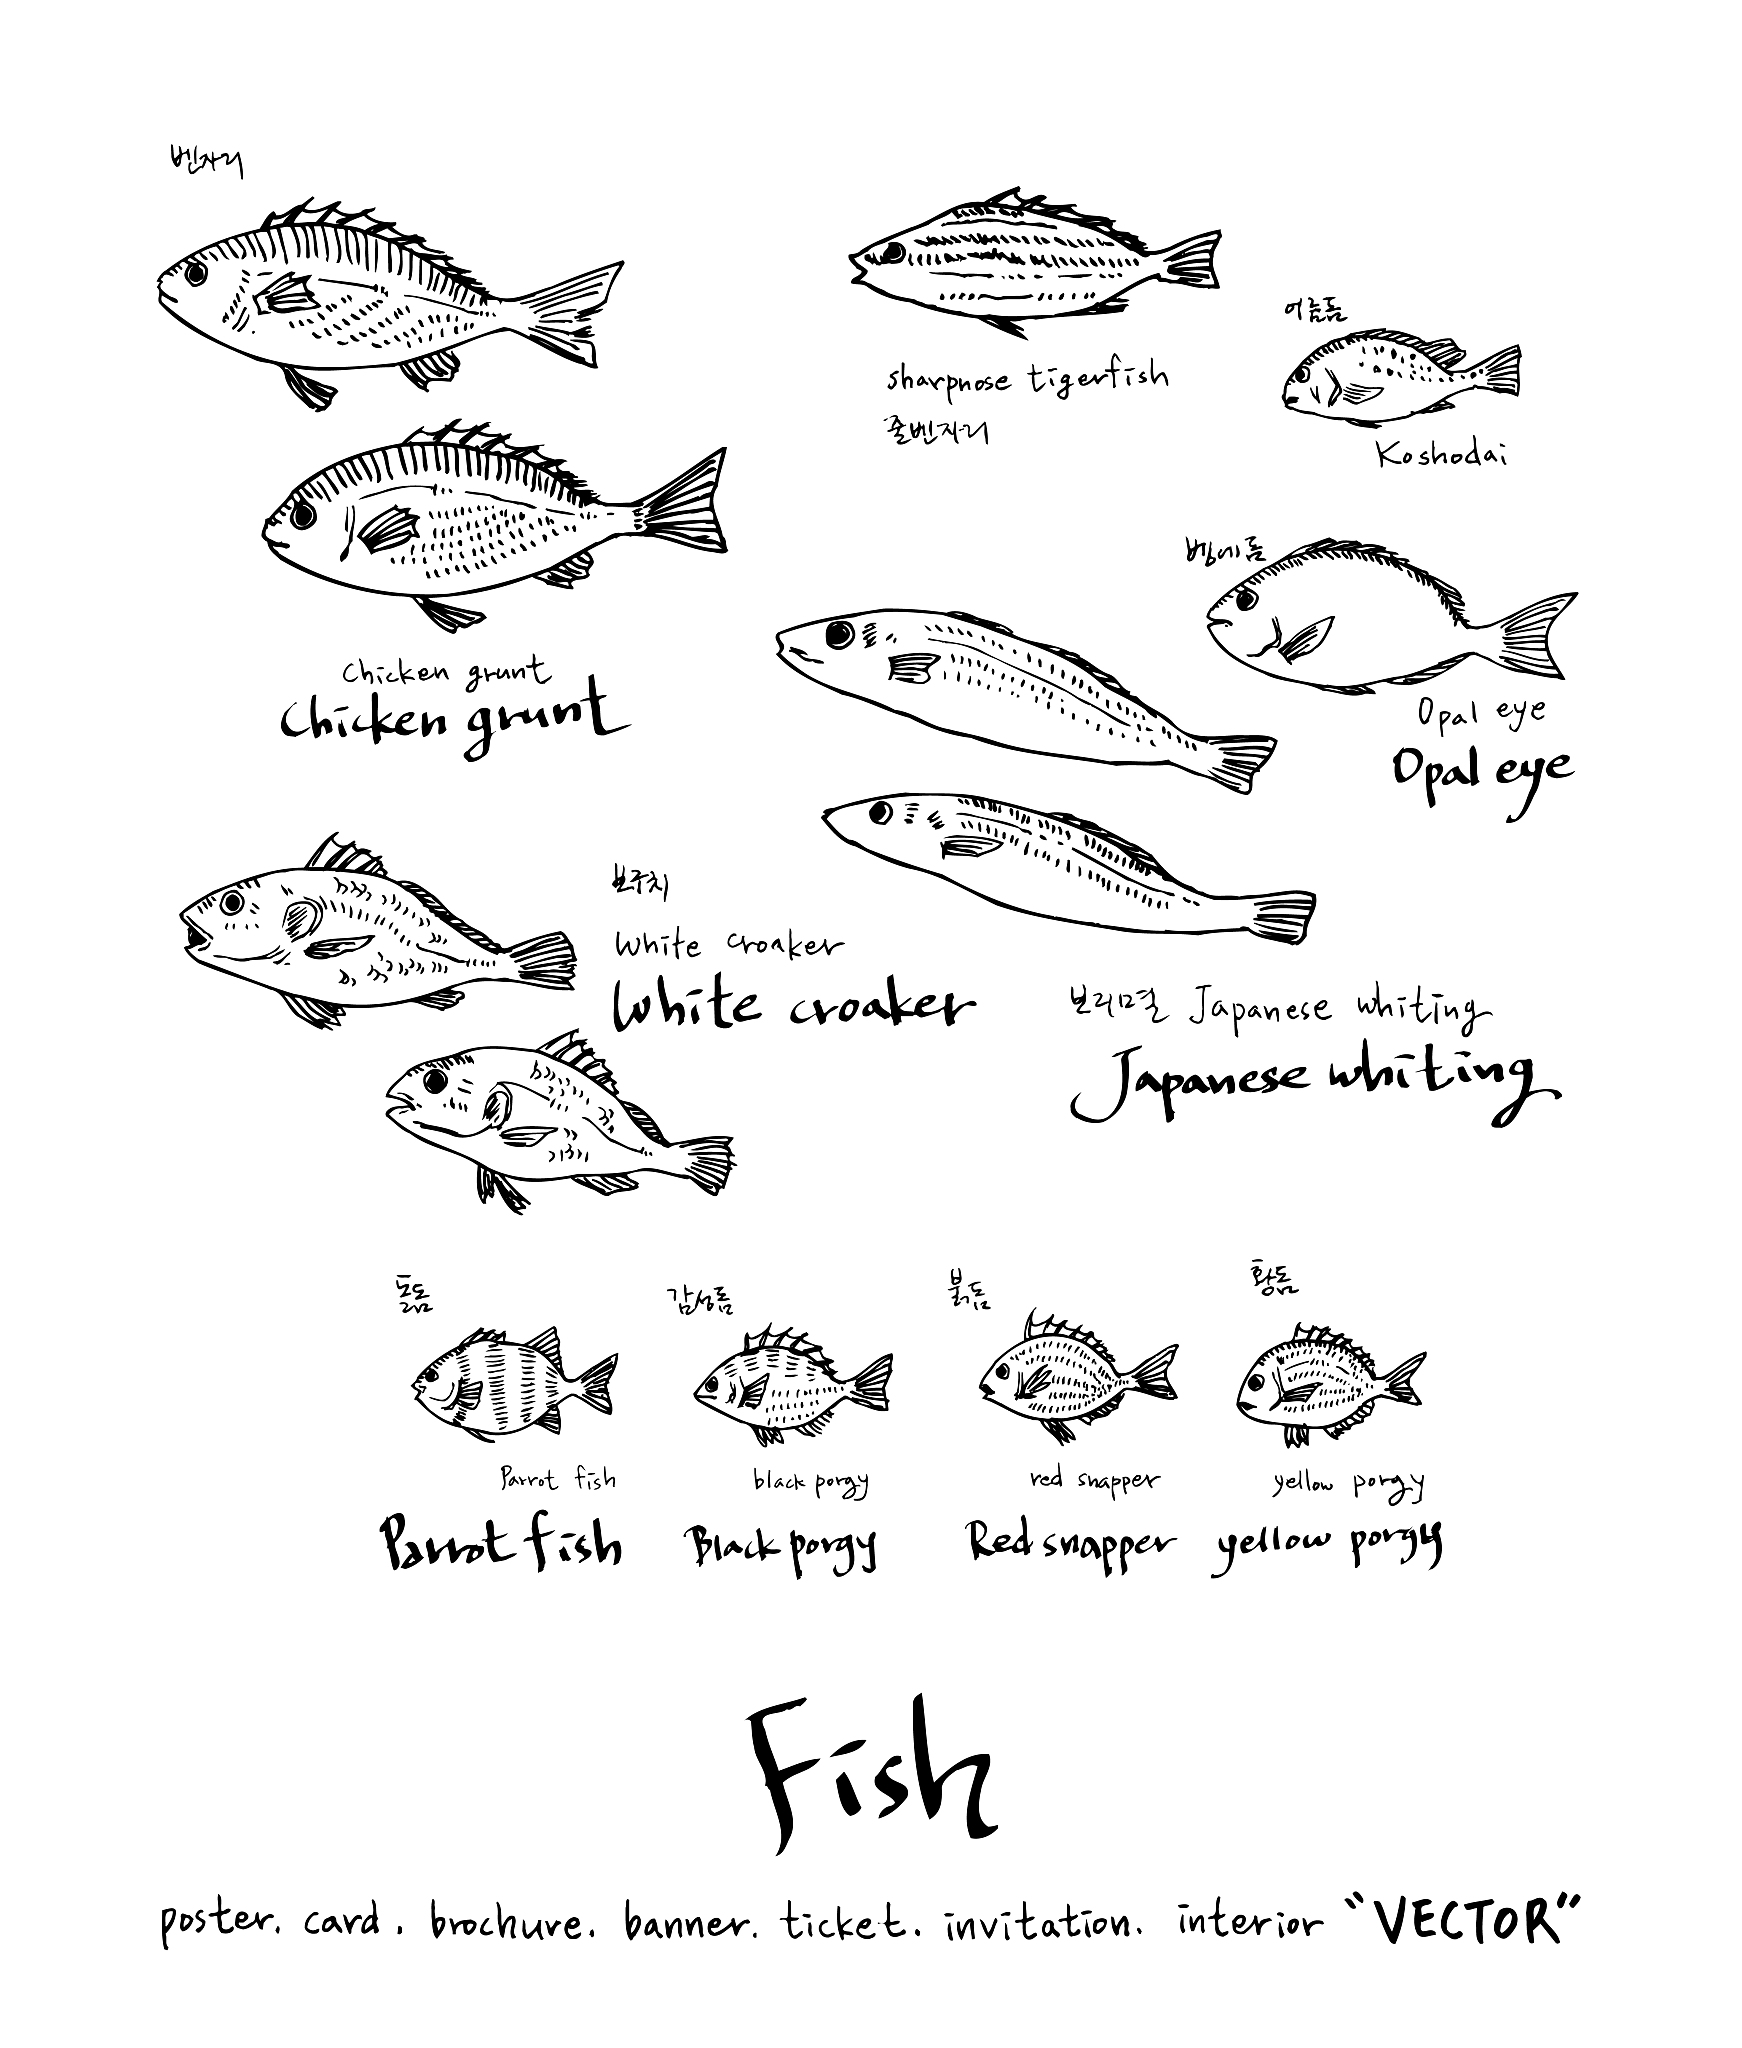 벤자리
Chicken grunt
Chicken grunt
sharpnose tigerfish
줄벤자리
어름돔
Koshodai
벵에돔
Opal eye
Opal eye
보구치
White croaker
White croaker
보리멸 Japanese whiting
Japanese whiting
돌돔
Parrot fish
Parrot fish
감성돔
black porgy
Black porgy
붉돔
red snapper
Red snapper
황돔
yellow porgy
yellow porgy
Fish
poster. card. brochure. banner. ticket. invitation. interior "VECTOR"